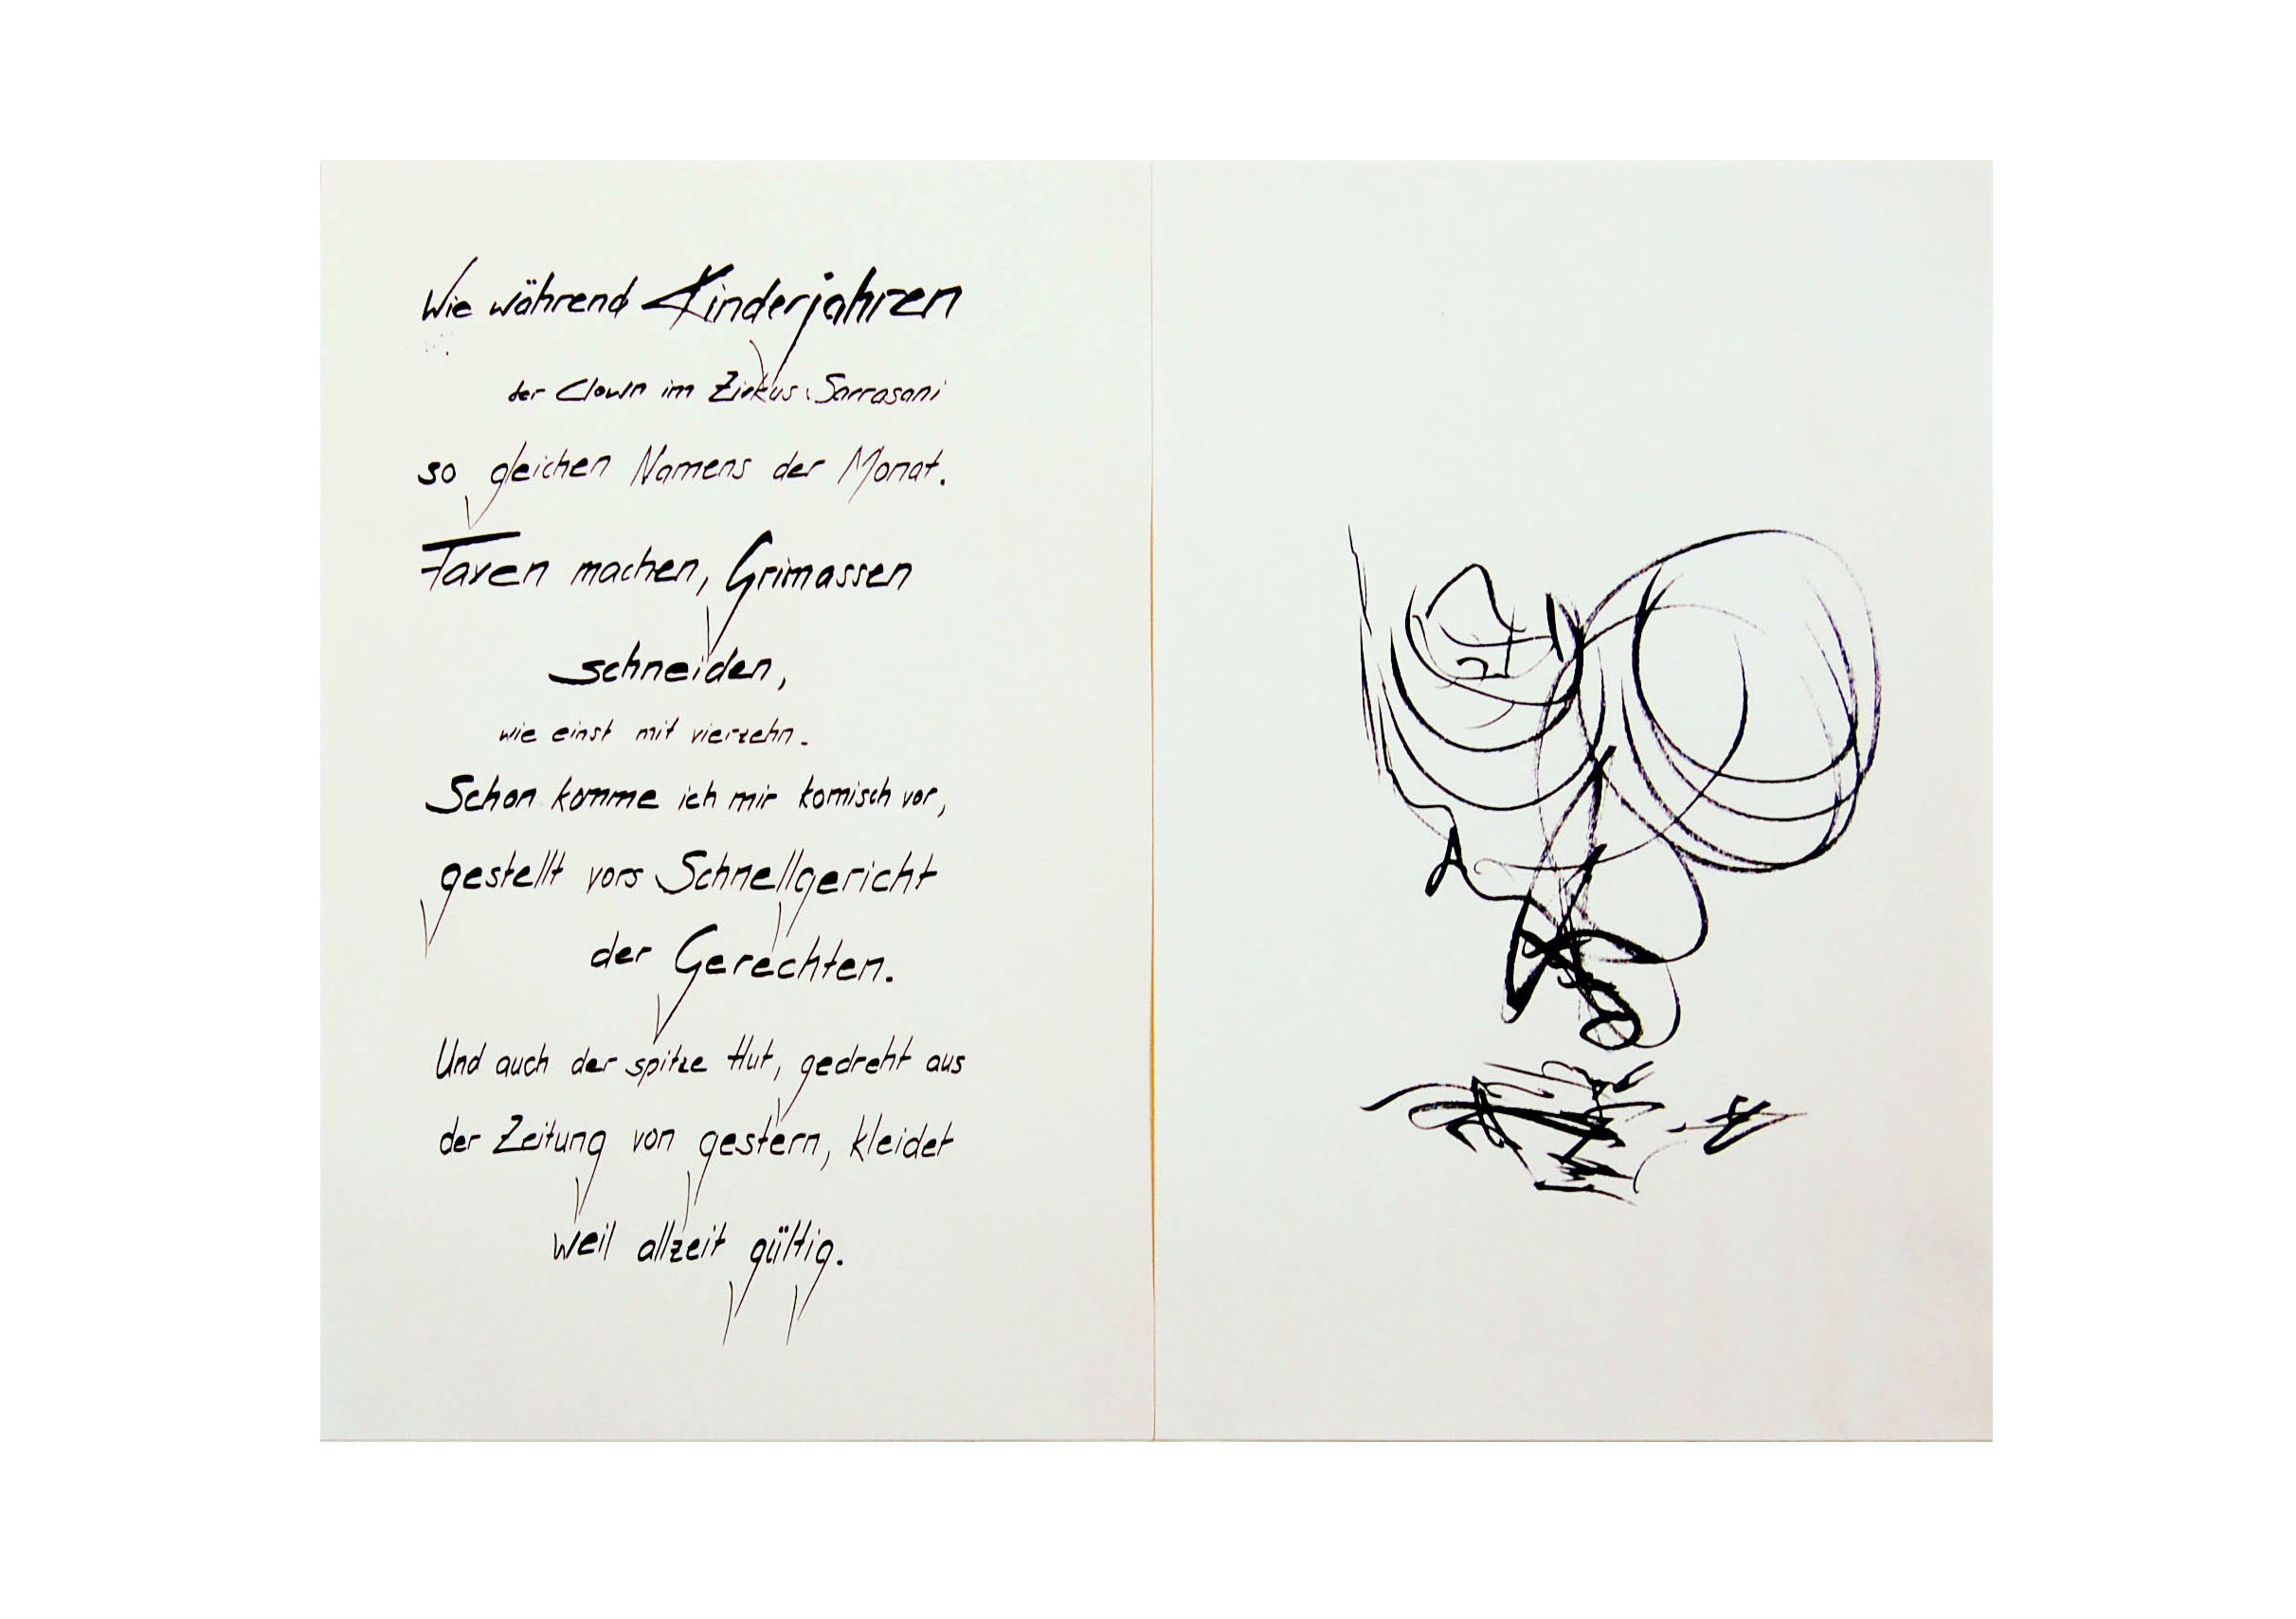 Wie während Kinderjahren
der Clown im Zirkus Sarrasani
so gleichen Namens der Monat.
Faxen machen, Grimassen
schneiden,
wie einst mit vierzehn.
Schon komme ich mir komisch vor,
gestellt vors Schnellgericht
der Gerechten.
Und auch der spitze Hut, gedreht aus
der Zeitung von gestern, kleidet
weil allzeit gültig.